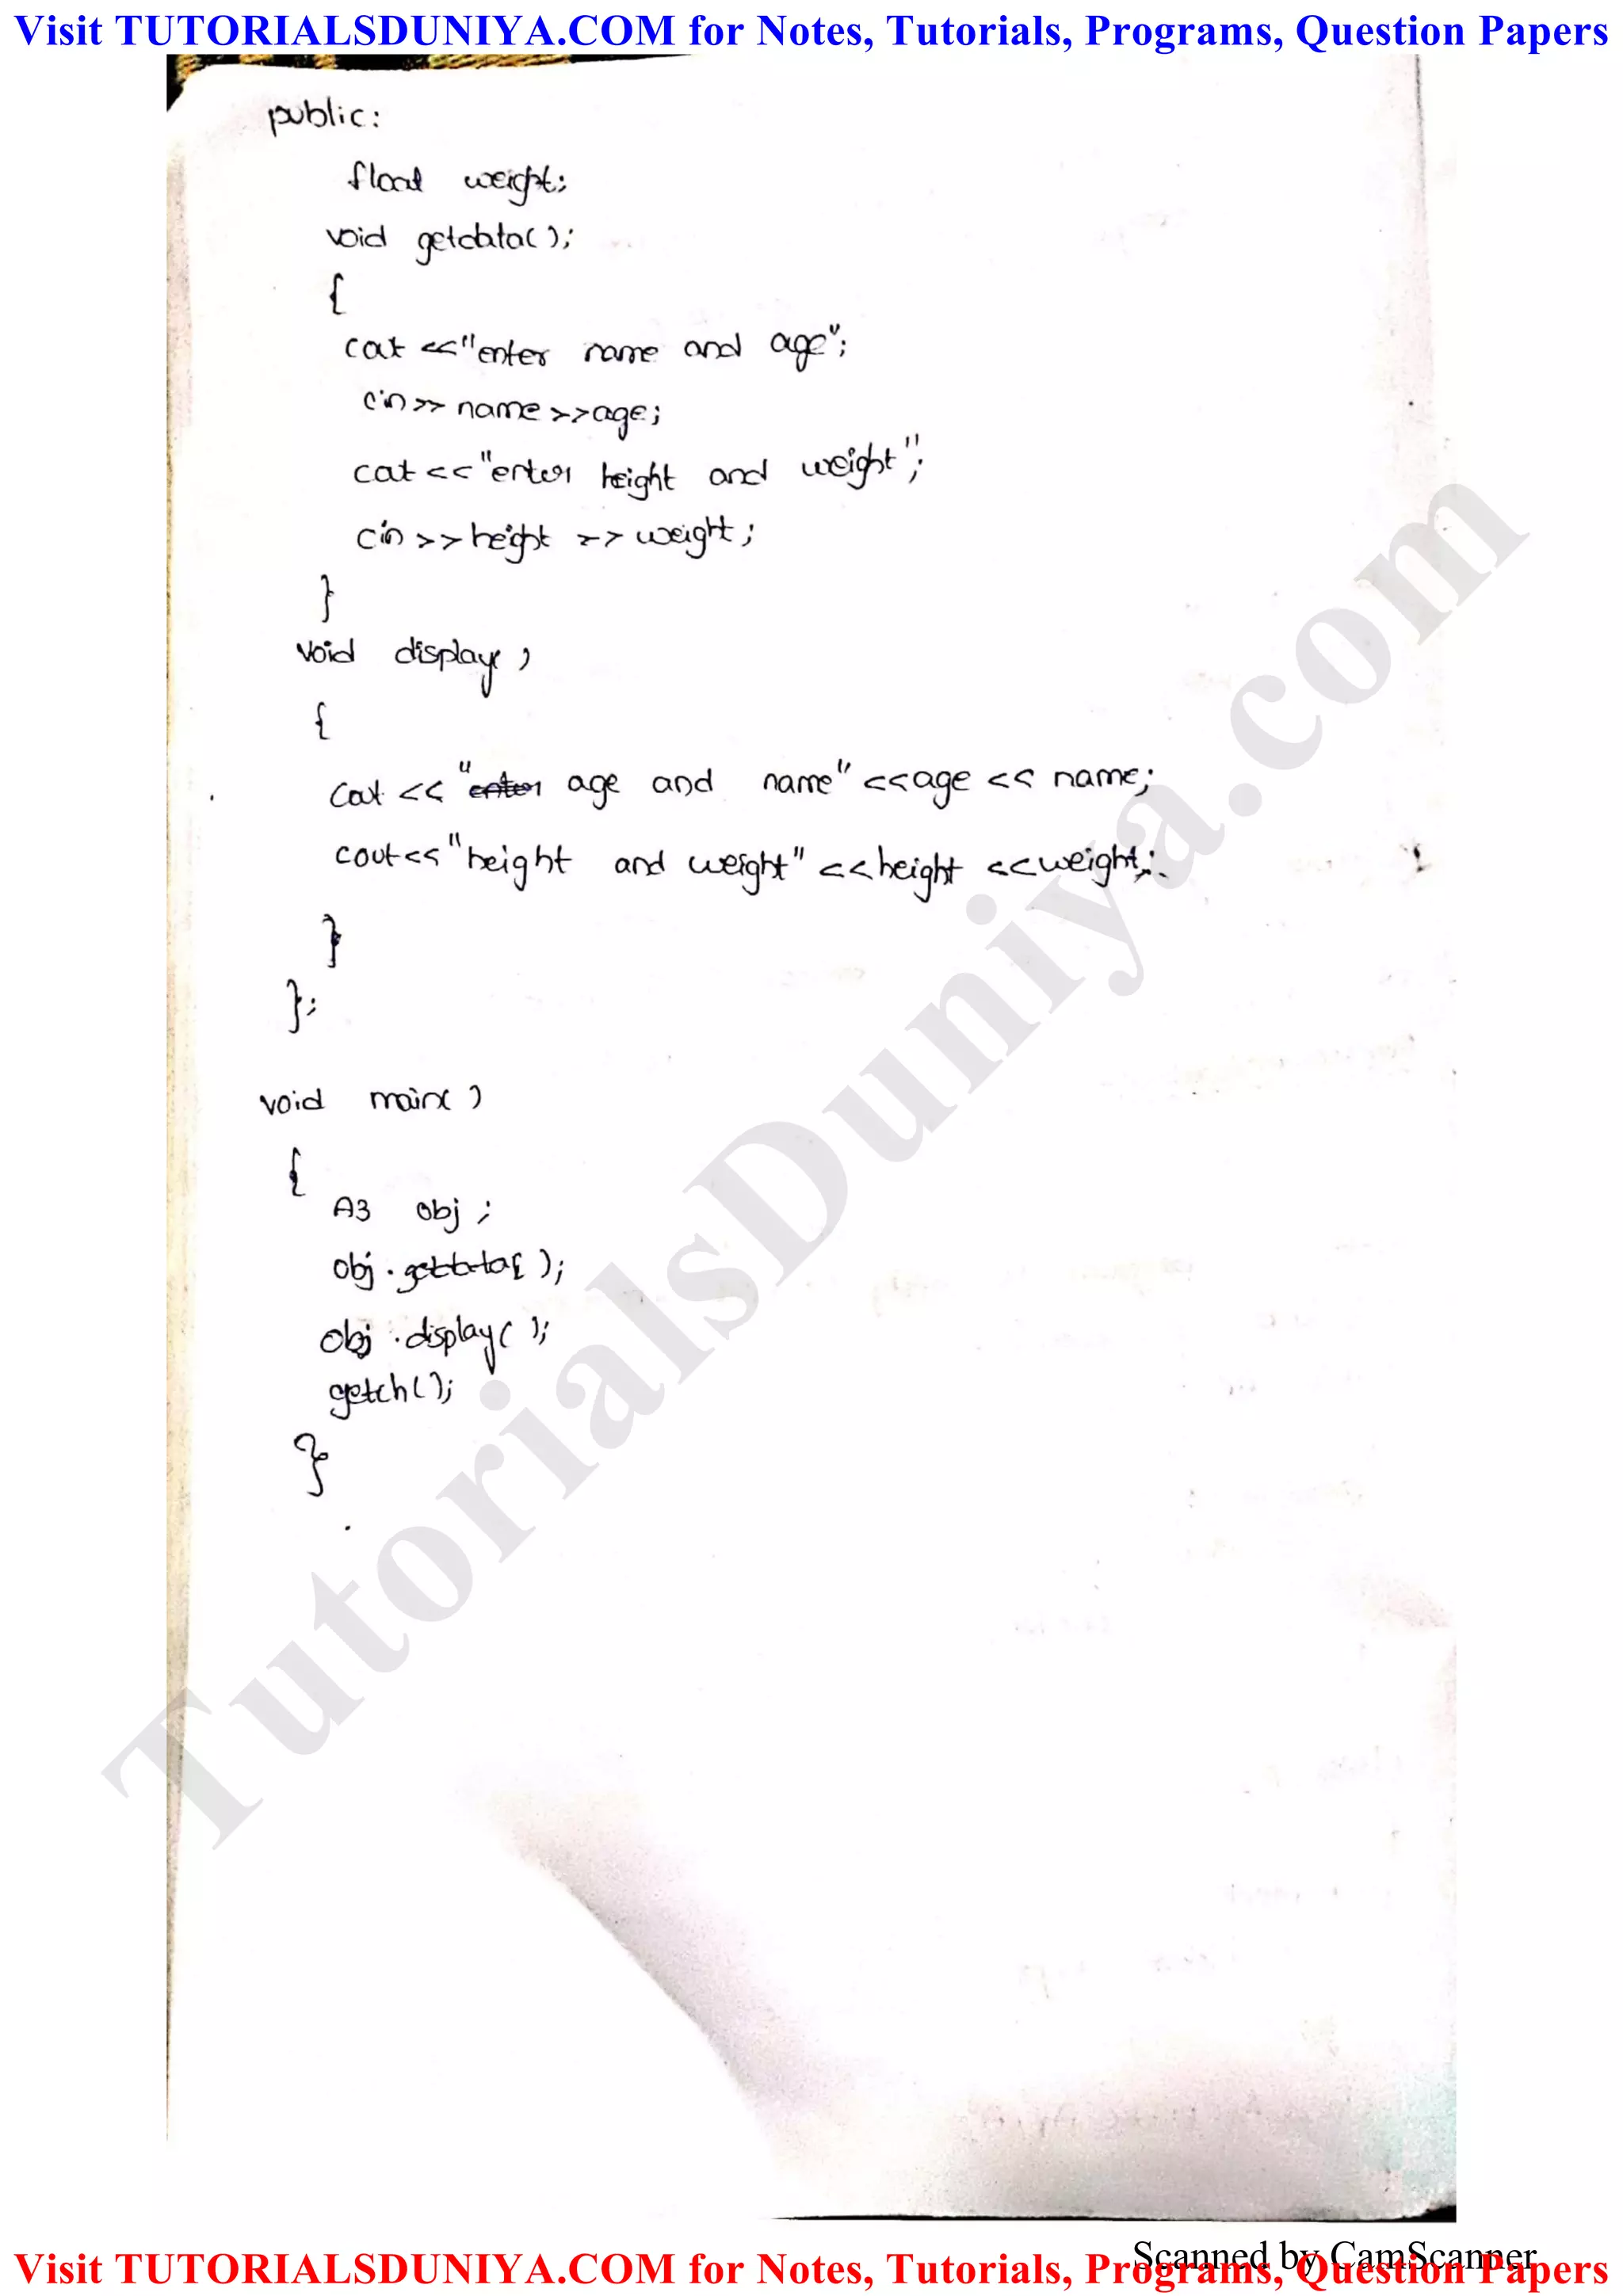 Visit TUTORIALSDUNIYA.COM for Notes, Tutorials, Programs, Question Papers
public:
float weight;
void getdata();
{
cout <<"enter name and age";
cin>> name >>age;
cout <<"enter height and weight";
cin >>height >> weight;
}
void display()
{
cout << "enter age and name" <<age << name;
cout<<"height and weight" <<height <<weight;
}
};
void main()
{
A3 obj;
obj.getdata();
obj.display();
getch();
}
TutorialsDuniya.com
Scanned by CamScanner
Visit TUTORIALSDUNIYA.COM for Notes, Tutorials, Programs, Question Papers